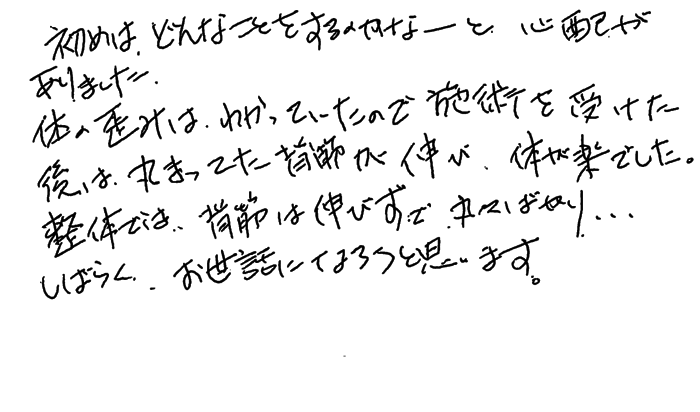 初めは、どんなことをするのかなーと、心配が
ありました。
体の歪みは、わかっていたので施術を受けた
後は、丸まってた背筋が伸び、体が楽でした。
整体では、背筋は伸びずで、丸くばかり...
しばらく、お世話になろうと思います。